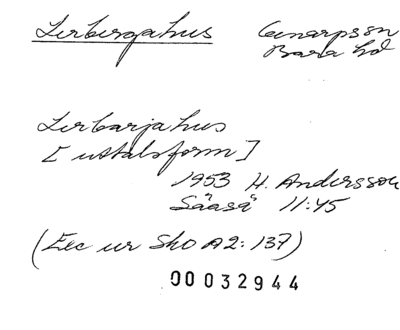 Lerbergahus Genarpssn
Bara hd
Lerbarjahus
[uttalsform]
1953 H. Andersson
Såaså 11:45
(Exc ur SkO A2:137)
00032944